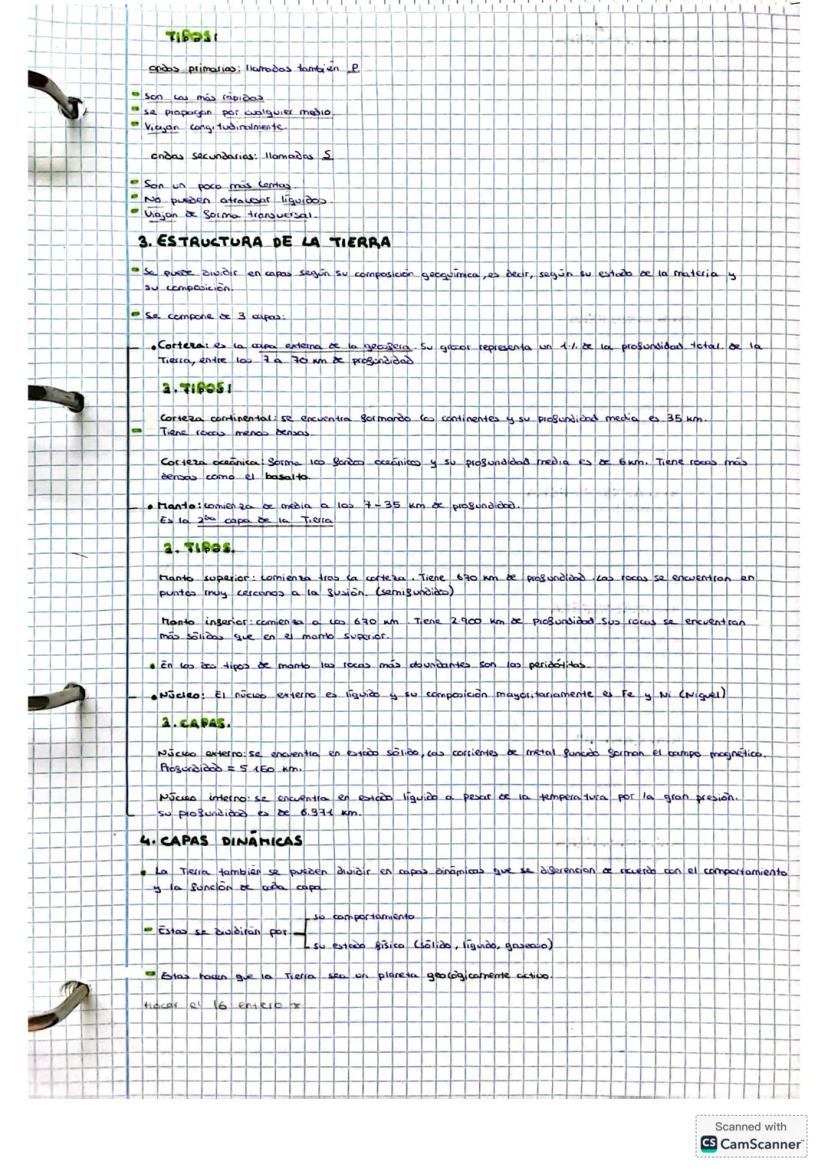 TIPOS:
ondas primarias: llamadas también P.
Son las más rápidas
se propagan por cualquier medio
Viajan longitudinalmente.
ondas secundarias: llamadas S
Son un poco más lentas.
No pueden atravesar líquidos.
Viajan de forma transversal.
3. ESTRUCTURA DE LA TIERRA
Se puede dividir en capas según su composición geoquímica, es decir, según su estado de la materia y
su composición.
Se compone de 3 capas:
Corteza: es la capa externa de la geosfera. Su grosor representa un 1% de la profundidad total de la
Tierra, entre los 7 a 70 km de profundidad
2. TIPOS:
Corteza continental: se encuentra formando los continentes y su profundidad media es 35 km.
Tiene rocas menos densas.
Corteza oceánica: forma los fondos oceánicos y su profundidad media es de 6km. Tiene rocas más
densas como el basalto.
Manto: comienza de media a los 7-35 km de profundidad.
Es la 2da capa de la Tierra
2. TIPOS.
Manto superior: comienza tras la corteza. Tiene 670 km de profundidad. Las rocas se encuentran en
puntos muy cercanos a la fusión. (semifundido)
Manto inferior: comienza a los 670 km. Tiene 2.900 km de profundidad. Sus rocas se encuentran
más sólidas que en el manto superior.
En los dos tipos de manto las rocas más abundantes son las peridótitas.
Núcleo: El núcleo externo es líquido y su composición mayoritariamente es Fe y Ni (Níquel)
2. CAPAS.
Núcleo externo: se encuentra en estado sólido, las corrientes de metal fundido forman el campo magnético.
Profundidad = 5 150 km.
Núcleo interno: se encuentra en estado líquido a pesar de la temperatura por la gran presión.
su profundidad es de 6.371 km.
4. CAPAS DINÁMICAS
La Tierra también se pueden dividir en capas dinámicas que se diferencian de acuerdo con el comportamiento
y la función de cada capa.
su comportamiento
Estas se dividirán por
su estado físico (sólido, líquido, gaseoso)
Estas hacen que la Tierra sea un planeta geológicamente activo.
Hacer el 16 enero
Scanned with
CS CamScanner